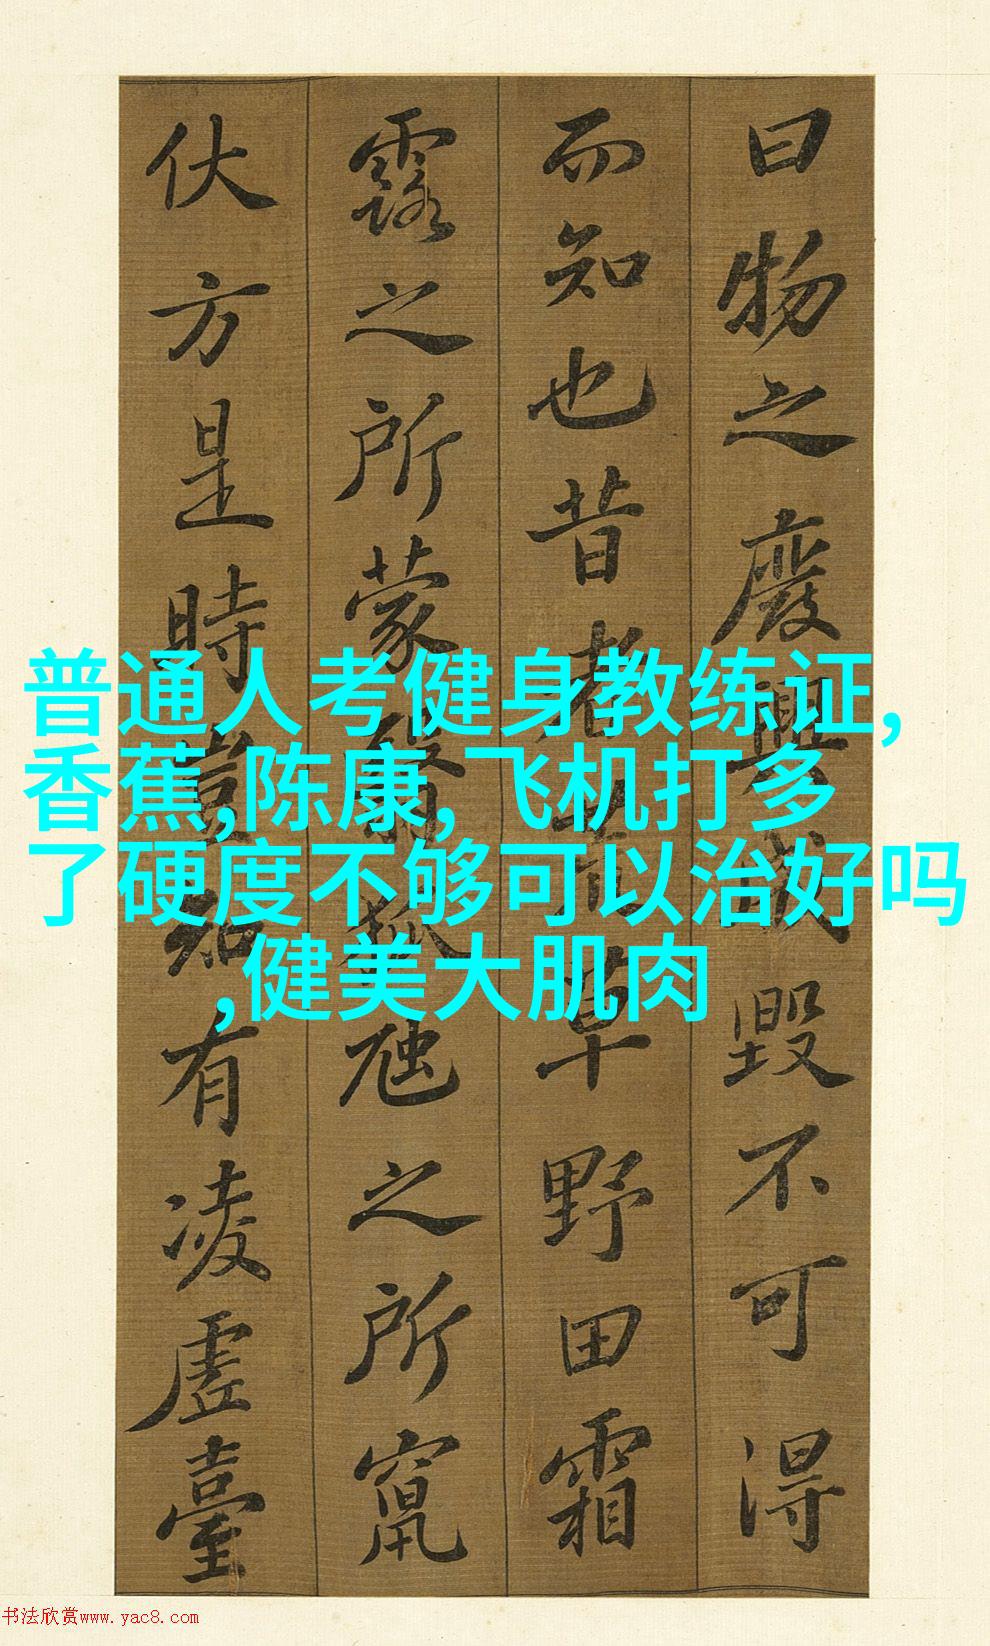 曰物之廢興成毀不可得
而知也昔者荒草野田霜
露之所蒙翳狐虺之所竄
伏方是時豈知有凌虛臺
普通人考健身教练证,
香蕉,陈康,飞机打多
了硬度不够可以治好吗
,健美大肌肉
书法欣赏www.yac8.com